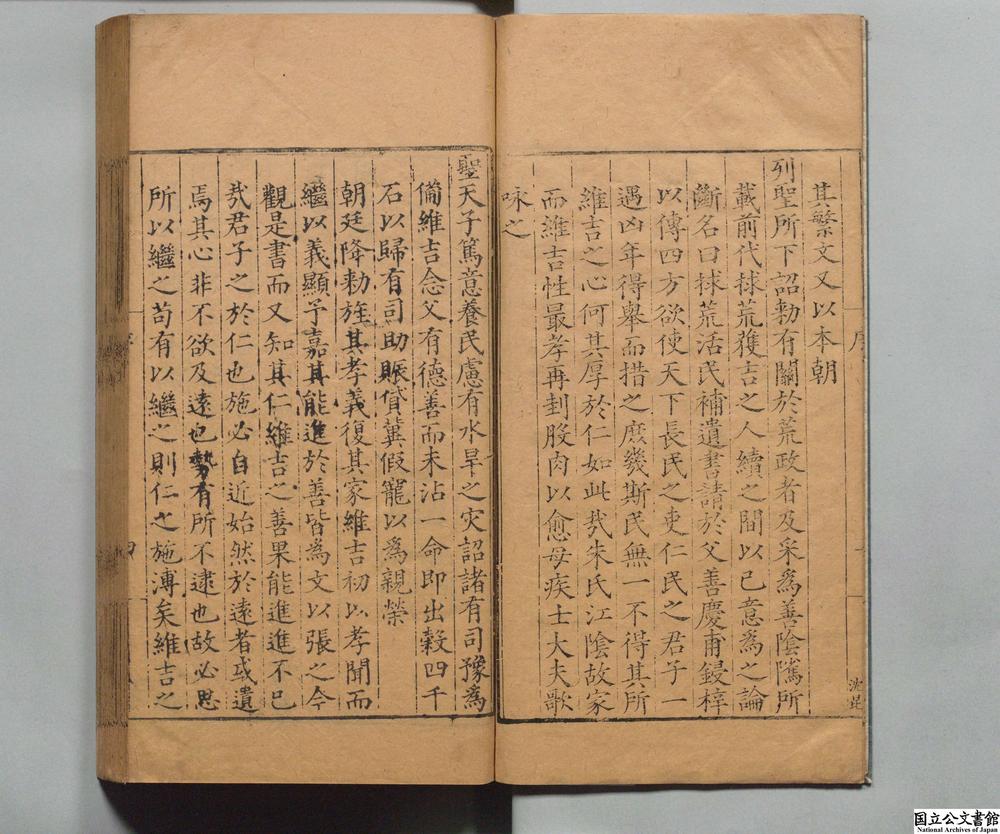 其繁文又以本朝
列聖所下詔勑有關於荒政者及采爲善陰隲所
載前代捄荒獲吉之人續之間以己意為之論
斷名曰捄荒活民補遺書請於父善慶甫鋟梓
以傳四方欲使天下長民之吏仁民之君子一
遇凶年得舉而措之庶幾斯民無一不得其所
維吉之心何其厚於仁如此㢤朱氏江陰故家
而維吉性最孝再刲股肉以愈母疾士大夫歌
咏之
聖天子篤意養民慮有水旱之灾詔諸有司豫爲
備維吉念父有德善而未沾一命即出糓四千
石以歸有司助賑貸冀假寵以爲親榮
朝廷降勑旌其孝義復其家維吉初以孝聞而
繼以義顯予嘉其能進於善皆為文以張之今
觀是書而又知其仁維吉之善果能進進不已
㢤君子之於仁也施必自近始然於遠者或遺
焉其心非不欲及遠也勢有所不逮也故必思
所以繼之苟有以繼之則仁之施溥矣維吉之
序
四
国立公文書館
National Archives of Japan